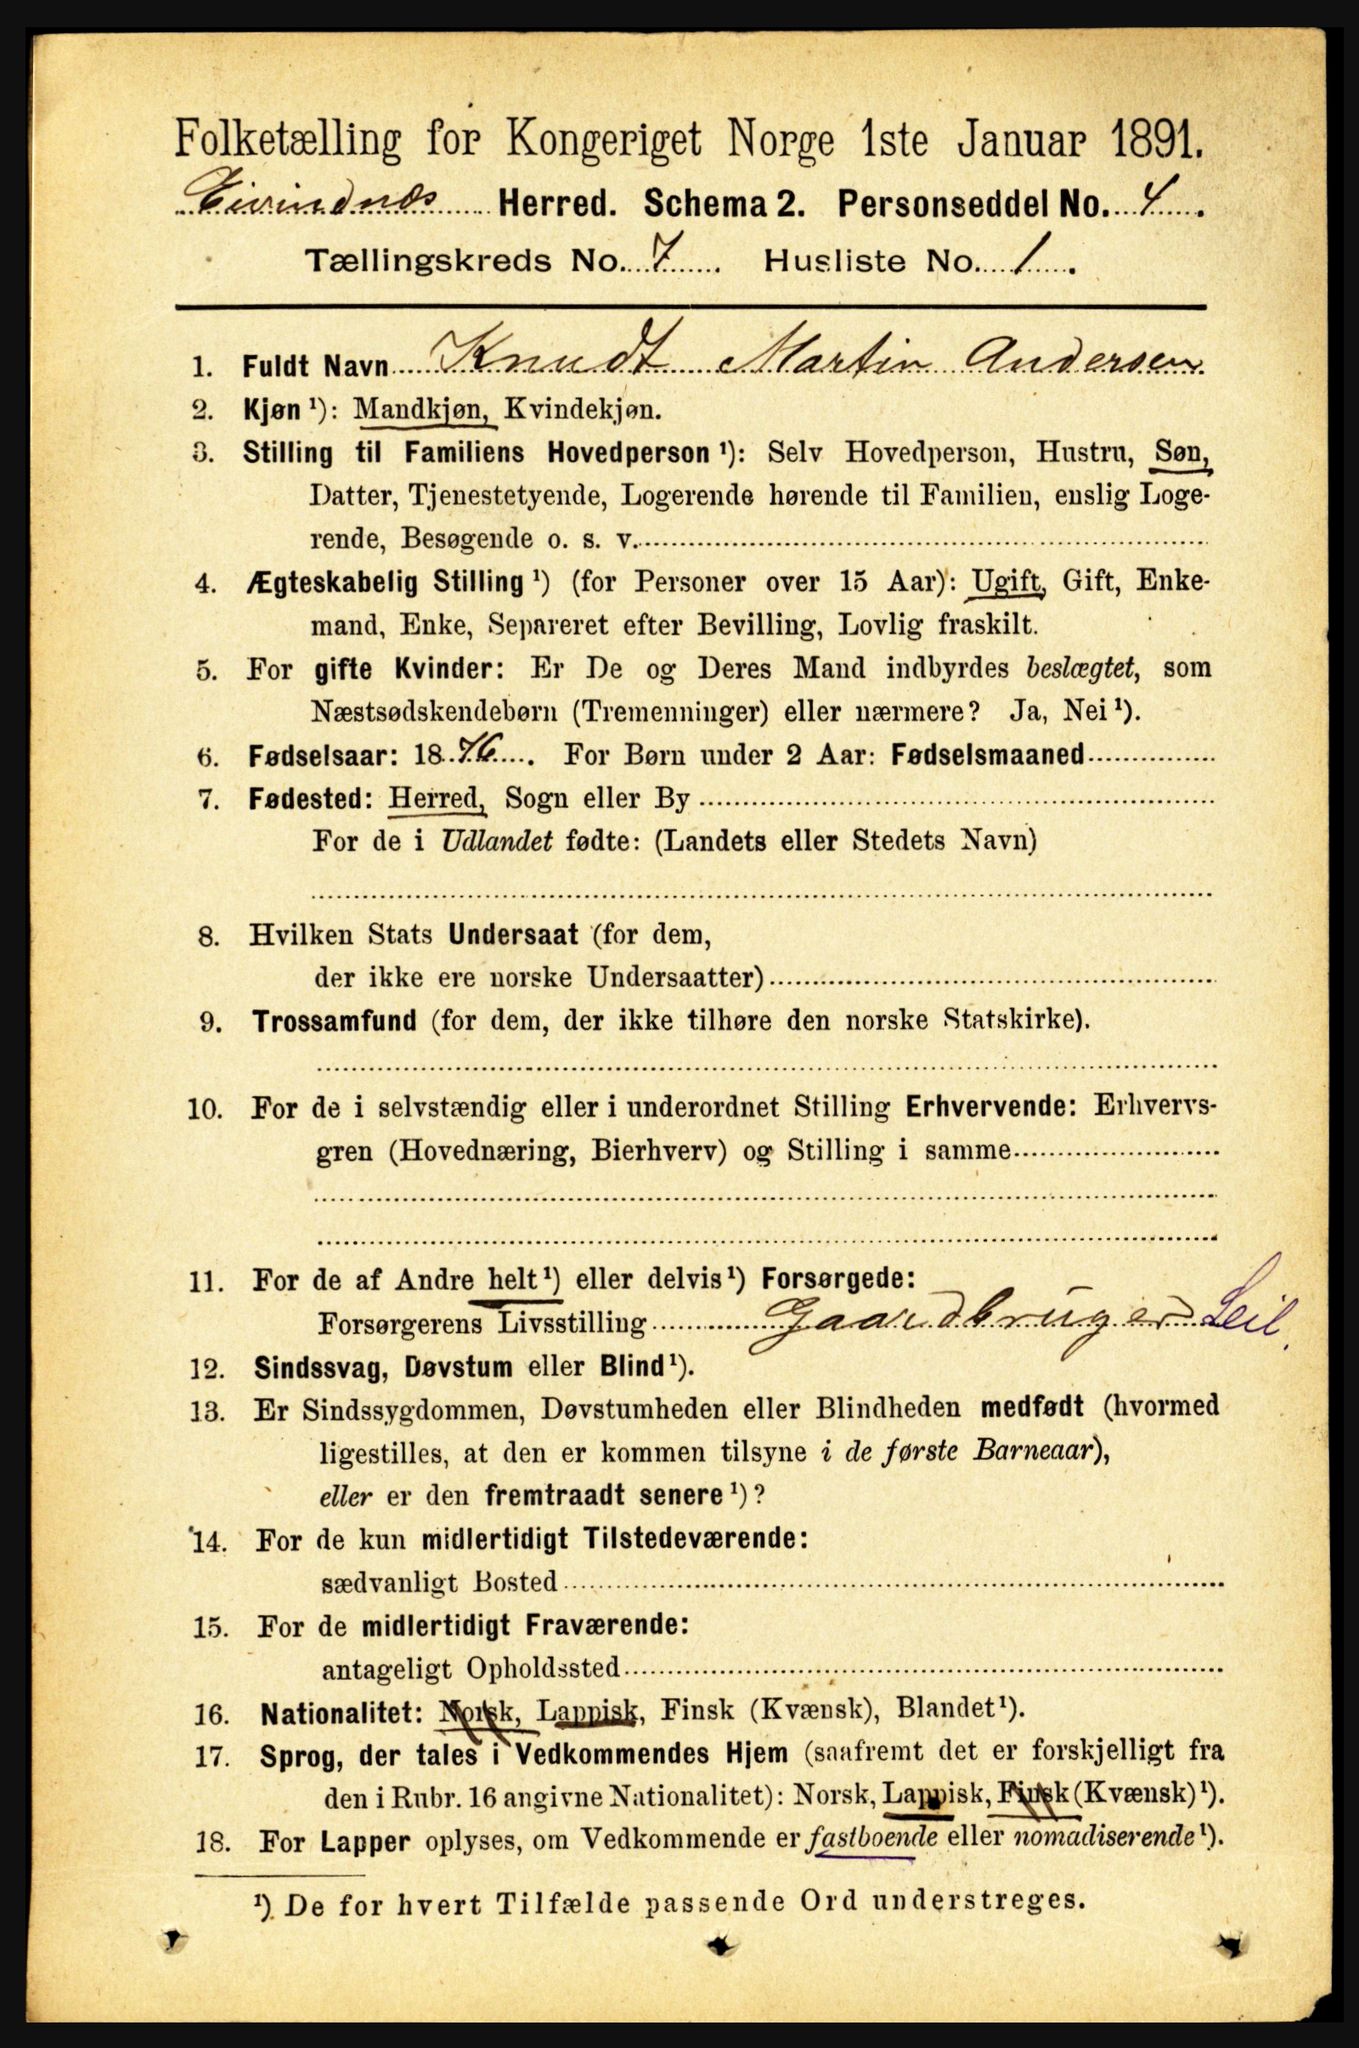 Folketælling for Kongeriget Norge 1ste Januar 1891.
Eivindnæs Herred. Schema 2. Personseddel No. 4.
Tællingskreds No. 7. Husliste No. 1.
1. Fuldt Navn Knudt Martin Andersen
2. Kjøn ¹): Mandkjøn, Kvindekjøn.
3. Stilling til Familiens Hovedperson ¹): Selv Hovedperson, Hustru, Søn,
Datter, Tjenestetyende, Logerende hørende til Familien, enslig Loge-
rende, Besøgende o. s. v.
4. Ægteskabelig Stilling ¹) (for Personer over 15 Aar): Ugift, Gift, Enke-
mand, Enke, Separeret efter Bevilling, Lovlig fraskilt.
5. For gifte Kvinder: Er De og Deres Mand indbyrdes beslægtet, som
Næstsødskendebørn (Tremenninger) eller nærmere? Ja, Nei ¹).
6. Fødselsaar: 1876. For Børn under 2 Aar: Fødselsmaaned
7. Fødested: Herred, Sogn eller By
For de i Udlandet fødte: (Landets eller Stedets Navn)
8. Hvilken Stats Undersaat (for dem,
der ikke ere norske Undersaatter)
9. Trossamfund (for dem, der ikke tilhøre den norske Statskirke).
10. For de i selvstændig eller i underordnet Stilling Erhvervende: Erhvervs-
gren (Hovednæring, Bierhverv) og Stilling i samme
11. For de af Andre helt ¹) eller delvis ¹) Forsørgede:
Forsørgerens Livsstilling Gaardbruger Leil.
12. Sindssvag, Døvstum eller Blind ¹).
13. Er Sindssygdommen, Døvstumheden eller Blindheden medfødt (hvormed
ligestilles, at den er kommen tilsyne i de første Barneaar),
eller er den fremtraadt senere ¹)?
14. For de kun midlertidigt Tilstedeværende:
sædvanligt Bosted
15. For de midlertidigt Fraværende:
antageligt Opholdssted
16. Nationalitet: Norsk, Lappisk, Finsk (Kvænsk), Blandet ¹).
17. Sprog, der tales i Vedkommendes Hjem (saafremt det er forskjelligt fra
den i Rubr. 16 angivne Nationalitet): Norsk, Lappisk, Finsk (Kvænsk) ¹).
18. For Lapper oplyses, om Vedkommende er fastboende eller nomadiserende ¹).
¹) De for hvert Tilfælde passende Ord understreges.